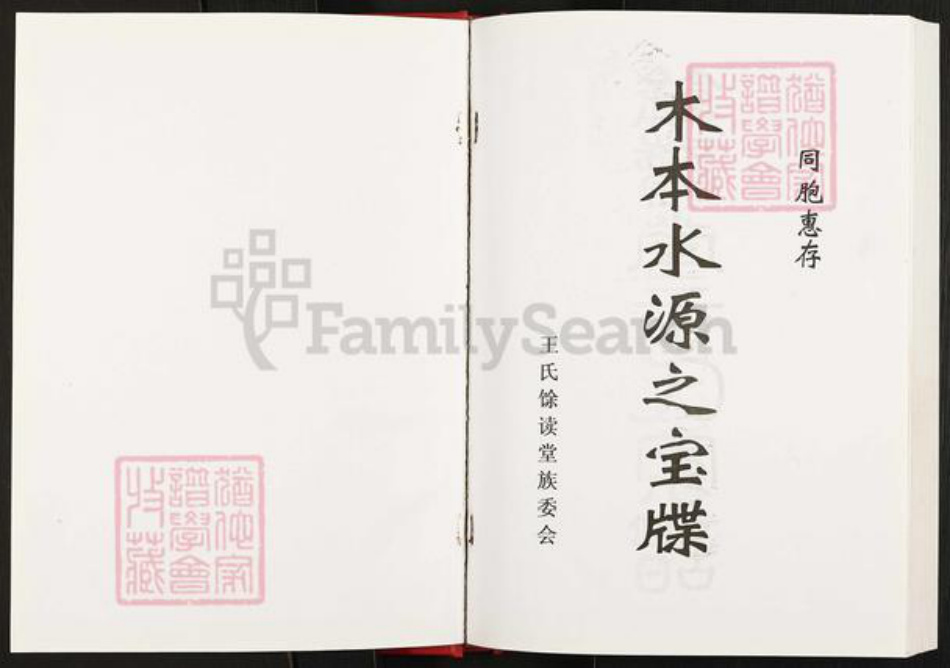 同胞惠存
木本水源之宝牒
王氏馀读堂族委会
猶他家
譜學會
收藏
FamilySearch
猶他家
譜學會
收藏